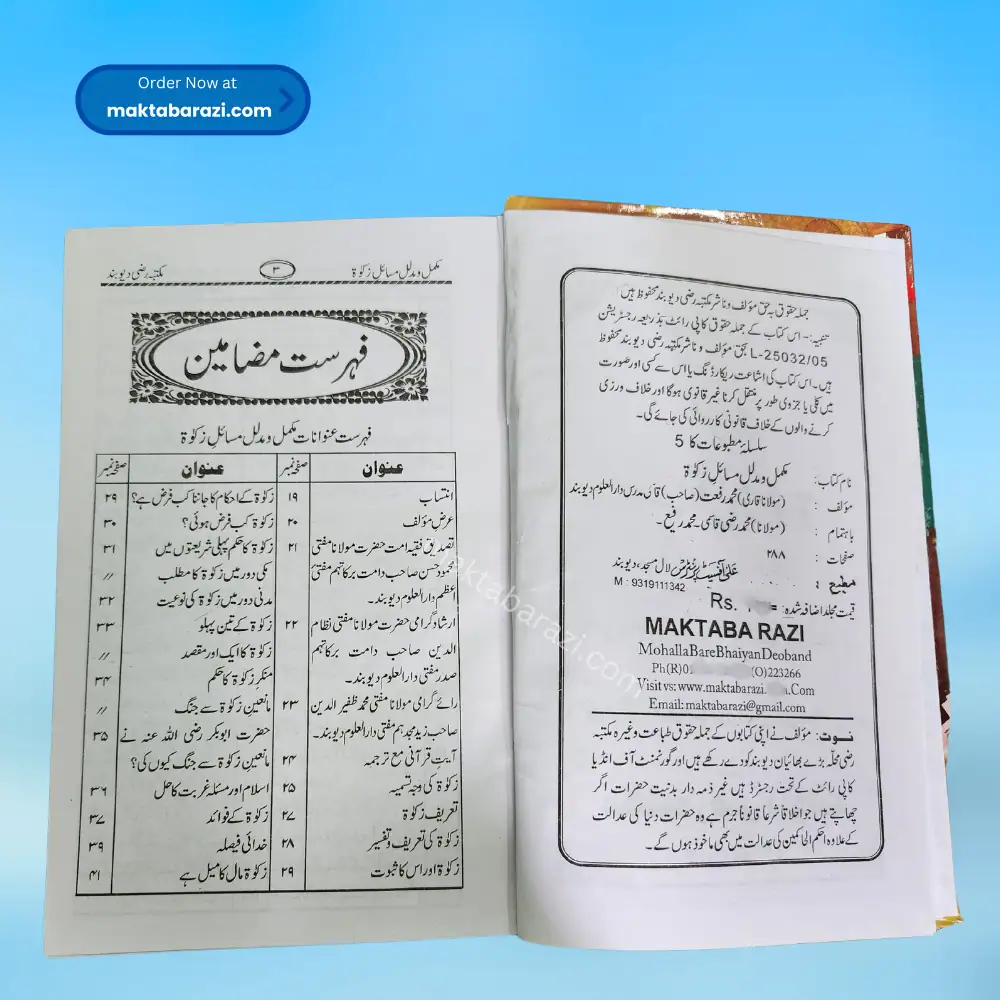 Order Now at
maktabarazi.com
جملہ حقوق بہ حق مؤلف و ناشر مکتبہ رضی دیوبند محفوظ ہیں
تنبیہ:- اس کتاب کے جملہ حقوق کاپی رائٹ بذریعہ رجسٹریشن
L-25032/05 بحق مؤلف و ناشر مکتبہ رضی دیوبند محفوظ
ہیں۔ اس کتاب کی اشاعت ریکارڈنگ یا اس سے کسی اور صورت
میں کلی یا جزوی طور پر منتقل کرنا غیر قانوی ہوگا اور خلاف ورزی
کرنے والوں کے خلاف قانونی کارروائی کی جائے گی۔
سلسلۂ مطبوعات کا 5
نام کتاب: مکمل و مدلل مسائل زکوٰۃ
مؤلف : (مولانا قاری) محمد رفعت (صاحب) قاسمی مدرس دارالعلوم دیوبند
باہتمام : (مولانا) محمد رضی قاسمی۔ محمد رفیع۔
صفحات : ۲۸۸
مطبع : علی آفسیٹ پرنٹرس لال مسجد، دیوبند
M : 9319111342
قیمت مجلد اضافہ شدہ: Rs.
MAKTABA RAZI
MohallaBareBhaiyanDeoband
Ph(R)01 (O)223266
Visit vs: www.maktabarazi. .Com
Email: maktabarazi@gmail.com
نوٹ: مؤلف نے اپنی کتابوں کے جملہ حقوق طباعت وغیرہ مکتبہ
رضی محلّہ بڑے بھائیان دیوبند کو دے رکھے ہیں اور گورنمنٹ آف انڈیا
کاپی رائٹ کے تحت رجسٹرڈ ہیں غیر ذمہ دار بدنیت حضرات اگر
چھاپتے ہیں جو اخلاقاً شرعاً قانوناً جرم ہے وہ حضرات دنیا کی عدالت
کے علاوہ احکم الحاکمین کی عدالت میں بھی ماخوذ ہوں گے۔
مکمل و مدلل مسائل زکوٰۃ ۳ مکتبہ رضی دیوبند
فہرست مضامین
فہرست عنوانات مکمل و مدلل مسائل زکوٰۃ
عنوان صفحہ نمبر عنوان صفحہ نمبر
انتساب ۱۹ زکوٰۃ کے احکام کا جاننا کب فرض ہے؟ ۲۹
عرض مؤلف ۲۰ زکوٰۃ کب فرض ہوئی؟ ۳۰
تصدیق فقیہ امت حضرت مولانا مفتی ۲۱ زکوٰۃ کا حکم پہلی شریعتوں میں ۳۱
محمود حسن صاحب دامت برکاتہم مفتیٔ مکی دور میں زکوٰۃ کا مطلب //
عظم دارالعلوم دیوبند۔ مدنی دور میں زکوٰۃ کی نوعیت ۳۲
ارشاد گرامی حضرت مولانا مفتی نظام ۲۲ زکوٰۃ کے تین پہلو ۳۳
الدین صاحب دامت برکاتہم زکوٰۃ کا ایک اور مقصد //
صدر مفتی دارالعلوم دیوبند۔ منکرِ زکوٰۃ کا حکم ۳۴
رائے گرامی مولانا مفتی محمد ظفیر الدین ۲۳ مانعین زکوٰۃ سے جنگ //
صاحب زید مجدہم مفتی دارالعلوم دیوبند۔ حضرت ابوبکر رضی اللہ عنہ نے ۳۵
آیت قرآنی مع ترجمہ ۲۴ مانعین زکوٰۃ سے جنگ کیوں کی؟
زکوٰۃ کی وجہ تسمیہ ۲۵ اسلام اور مسئلہ غربت کا حل ۳۶
تعریف زکوٰۃ ۲۷ زکوٰۃ کے فوائد ۳۷
زکوٰۃ کی تعریف و تفسیر ۲۸ خدائی فیصلہ ۳۹
زکوٰۃ اور اس کا ثبوت ۲۹ زکوٰۃ مال کا میل ہے ۴۱
maktabarazi.com